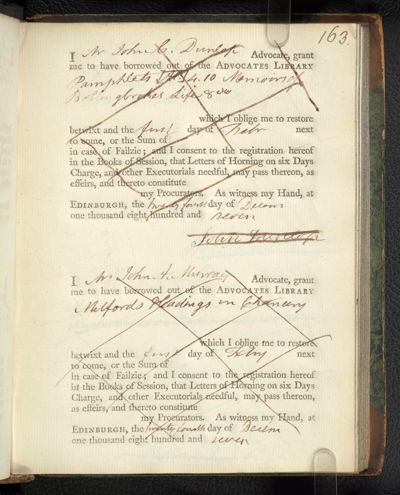 163.
I Mr John C. Dunlop Advocate, grant
me to have borrowed out of the ADVOCATES LIBRARY
Pamphlets 4.10 Memoirs of
Bolingbrokes Life 8vo
which I oblige me to restore
betwixt and the first day of Febr next
to come, or the Sum of
in case of Failzie; and I consent to the registration hereof
in the Books of Session, that Letters of Horning on six Days
Charge, and other Executorials needful, may pass thereon, as
effeirs, and thereto constitute
my Procurators. As witness my Hand, at
EDINBURGH, the twenty fourth day of Decem
one thousand eight hundred and seven
John Dunlop
I Mr John A. Murray Advocate, grant
me to have borrowed out of the ADVOCATES LIBRARY
Mitfords Pleadings in Chancery
which I oblige me to restore,
betwixt and the first day of Feby next
to come, or the Sum of
in case of Failzie; and I consent to the registration hereof
in the Books of Session, that Letters of Horning on six Days
Charge, and other Executorials needful, may pass thereon,
as effeirs, and thereto constitute
my Procurators. As witness my Hand, at
EDINBURGH, the twenty fourth day of Decem
one thousand eight hundred and seven